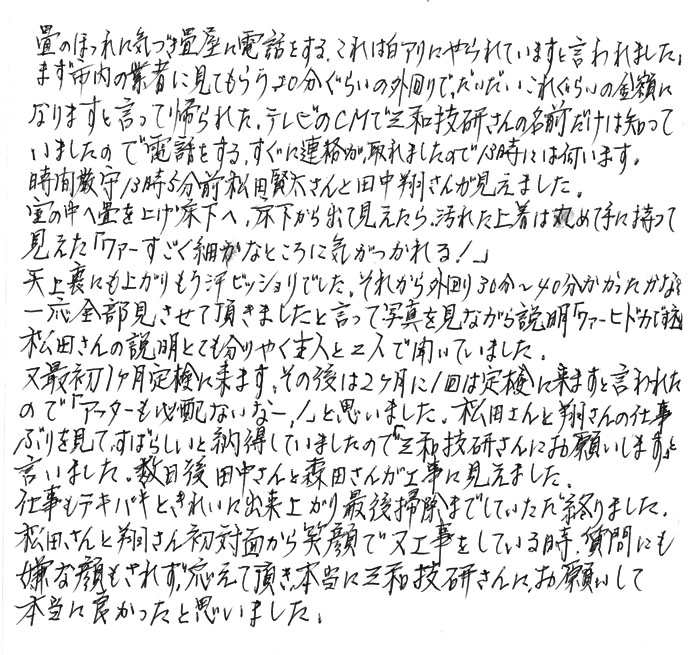 畳のほつれに気づき畳屋に電話をする、これは白アリにやられていますと言われました。
まず市内の業者に見てもらう、20分ぐらいの外回りで、だいたいこれぐらいの金額に
なりますと言って帰られた。テレビのCMで三和技研さんの名前だけは知って
いましたので電話をする、すぐに連絡が取れましたので13時には伺います。
時間厳守13時5分前松田賢太さんと田中翔さんが見えました。
室の中へ畳を上げ床下へ、床下から出て見えたら、汚れた上着は丸めて手に持って
見えた「ワァーすごく細かなところに気がつかれる!」
天上裏にも上がりもう汗ビッショリでした。それから外回り30分~40分かかったかな
一応全部見させて頂きましたと言って写真を見ながら説明「ワァーヒドカ
松田さんの説明とても分りやく主人と2人で聞いていました。
又最初1ヶ月定検に来ます、その後は2ヶ月に1回は定検に来ますと言われた
ので「アフターも心配ないなー、!」と思いました。松田さんと翔さんの仕事
ぶりを見て、すばらしいと納得していましたので「三和技研さんにお願いします」と
言いました。数日後田中さんと森田さんが工事に見えました。
仕事もテキパキと、きれいに出来上がり最後掃除までしていただき終りました。
松田、さんと翔さん初対面から笑顔で又工事をしている時、質問にも
嫌な顔もされず、応えて頂き、本当に三和技研さんに、お願いして
本当に良かったと思いました。